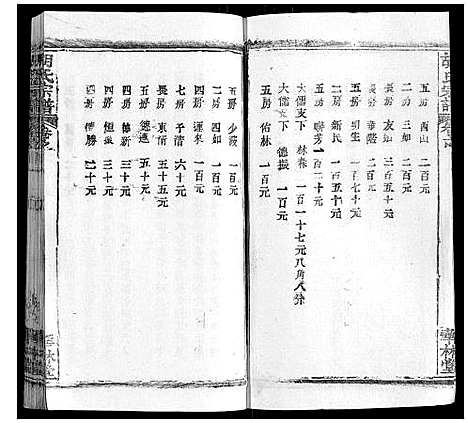 胡氏宗譜
五房 西山 二百元
二房 三如 二百元
長房 友如 三百五十元
長房 華 二百元
五房 卯生 一百五十元
二房 新民 一百五十元
二房 聯芳 一百二十元
大儒支下 林森 一百一十七元八角八分
大儒支下 德振 一百元
五房 佑林 一百元
華林堂
胡氏宗譜
五房 少 一百元
二房 四如 一百元
四房 運來 一百元
六房 子清 六十元
長房 東 五十五元
五房 德 五十元
四房 德新 三十元
四房 二十元
華林堂